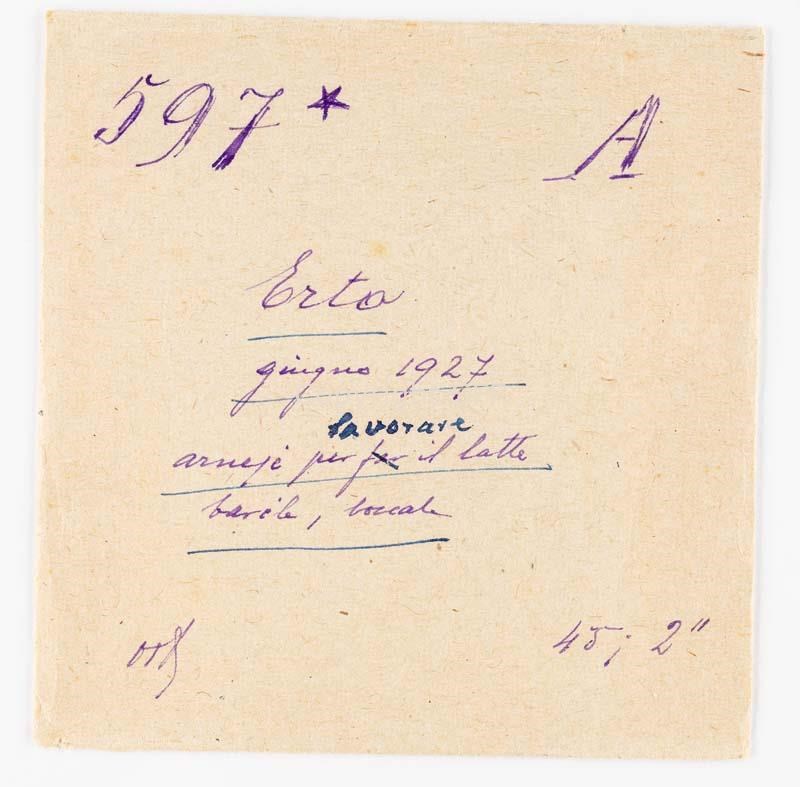 597* A
Erto
giugno 1927
lavorare
arnesi per il latte
barile, boccale
45; 2"